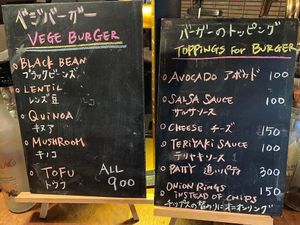 ベジバーガー
VEGE BURGER
BLACK BEAN
ブラックビーンズ
LENTIL
レンズ豆
QUINOA
キヌア
MUSHROOM
キノコ
TOFU
トウフ
ALL
900
バーガーのトッピング
TOPPINGS FOR BURGER
AVOCADO アボカド 100
SALSA SAUCE 100
サルサソース
CHEESE チーズ 150
TERIYAKI SAUCE 100
テリヤキソース
PATTY 追いパティ 300
ONION RINGS 150
INSTEAD OF CHIPS
チップスの替わりにオニオンリング